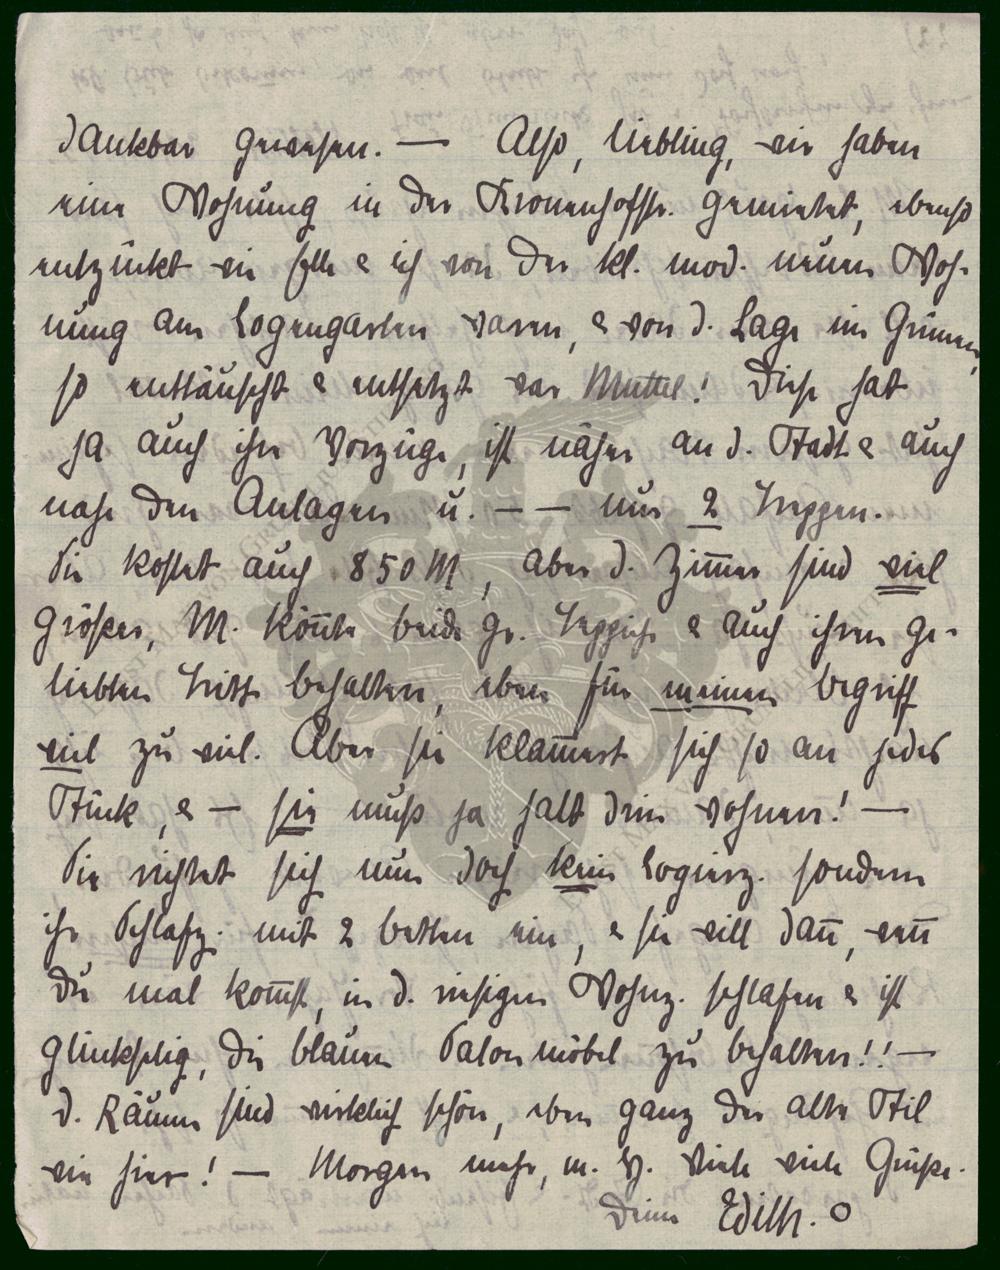 dankbar gewesen. — Also, Liebling, wir haben
eine Wohnung in der Kronenhofstr. gemietet, ebenso
entzückt wie Elle & ich von der kl. mod. neuen Woh-
nung am Logengarten waren, & von d. Lage im Grünen,
so enttäuscht & entsetzt war Muttel! Diese hat
ja auch ihre Vorzüge, ist näher an d. Stadt & auch
nahe den Anlagen u. — — nur 2 Treppen.
Sie kostet auch 850 M, aber d. Zimmer sind viel
größer, M. könnte beide gr. Teppiche & auch ihren ge-
liebten Tritt behalten, eben für meinen Begriff
viel zu viel. Aber sie klammert sich so an jedes
Stück, & — sie muß ja halt drin wohnen! —
Sie richtet sich nun doch kein Logierz. sondern
ihr Schlafz. mit 2 Betten ein, & sie will dann, wenn
Du mal kommst, in d. riesigen Wohnz. schlafen & ist
glückselig, die blauen Salonmöbel zu behalten!! —
d. Räume sind wirklich schön, eben ganz der alte Stil
wie hier! — Morgen mehr, m. H. Viele viele Grüße.
Deine Edith.